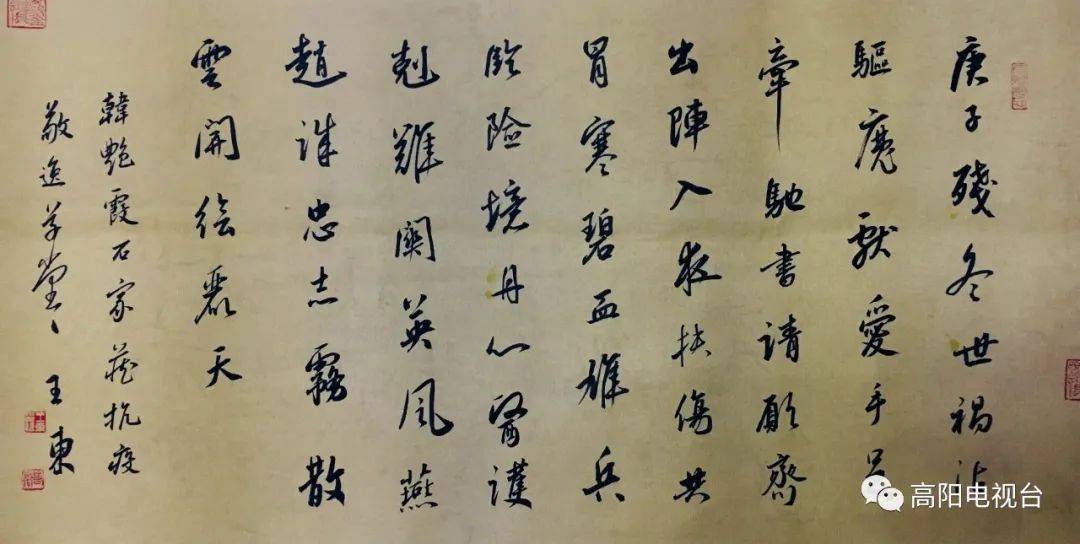 庚子殘冬世禍
驅魔獻愛手足
牽馳書請願齊
出陣入救扶傷共
冒寒碧血雄兵
臨險境丹心醫護
剋難關英風燕
趙譜忠志霧散
雲開绘麗天
韓艷霞石家莊抗疫
敬造草堂王東
高阳电视台